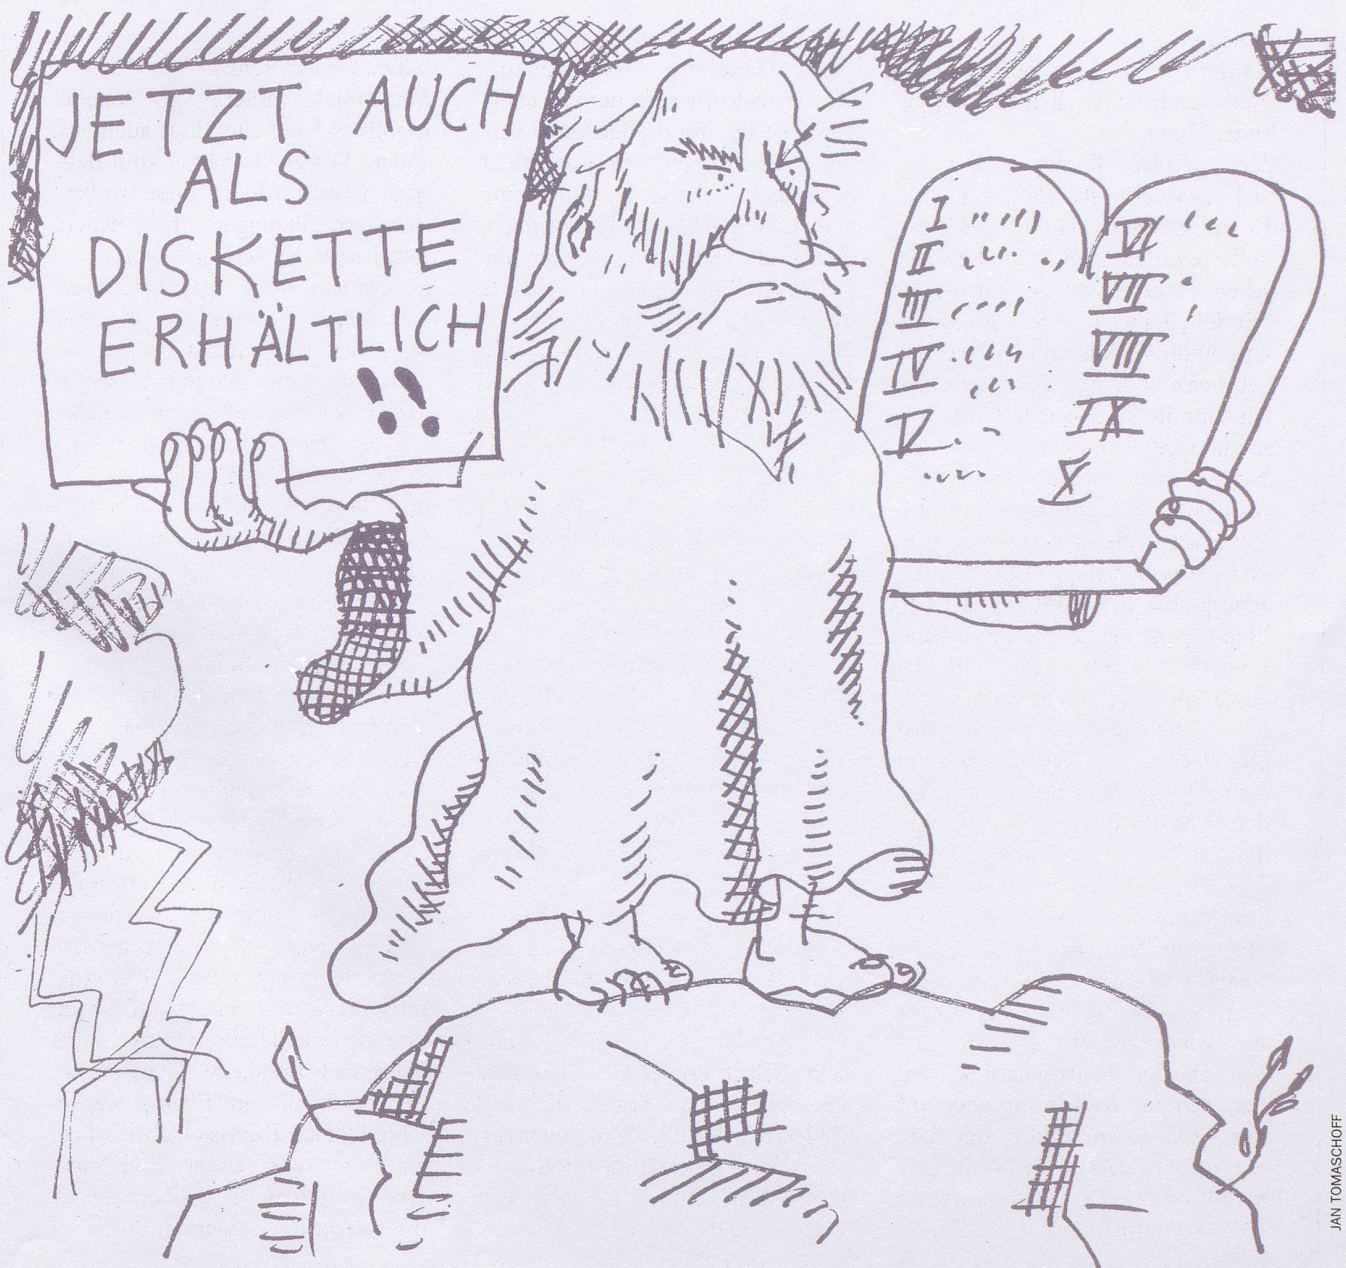 JETZT AUCH
ALS
DISKETTE
ERHÄLTLICH
!!
I
II
III
IV
V
VI
VII
VIII
IX
X
JAN TOMASCHOFF